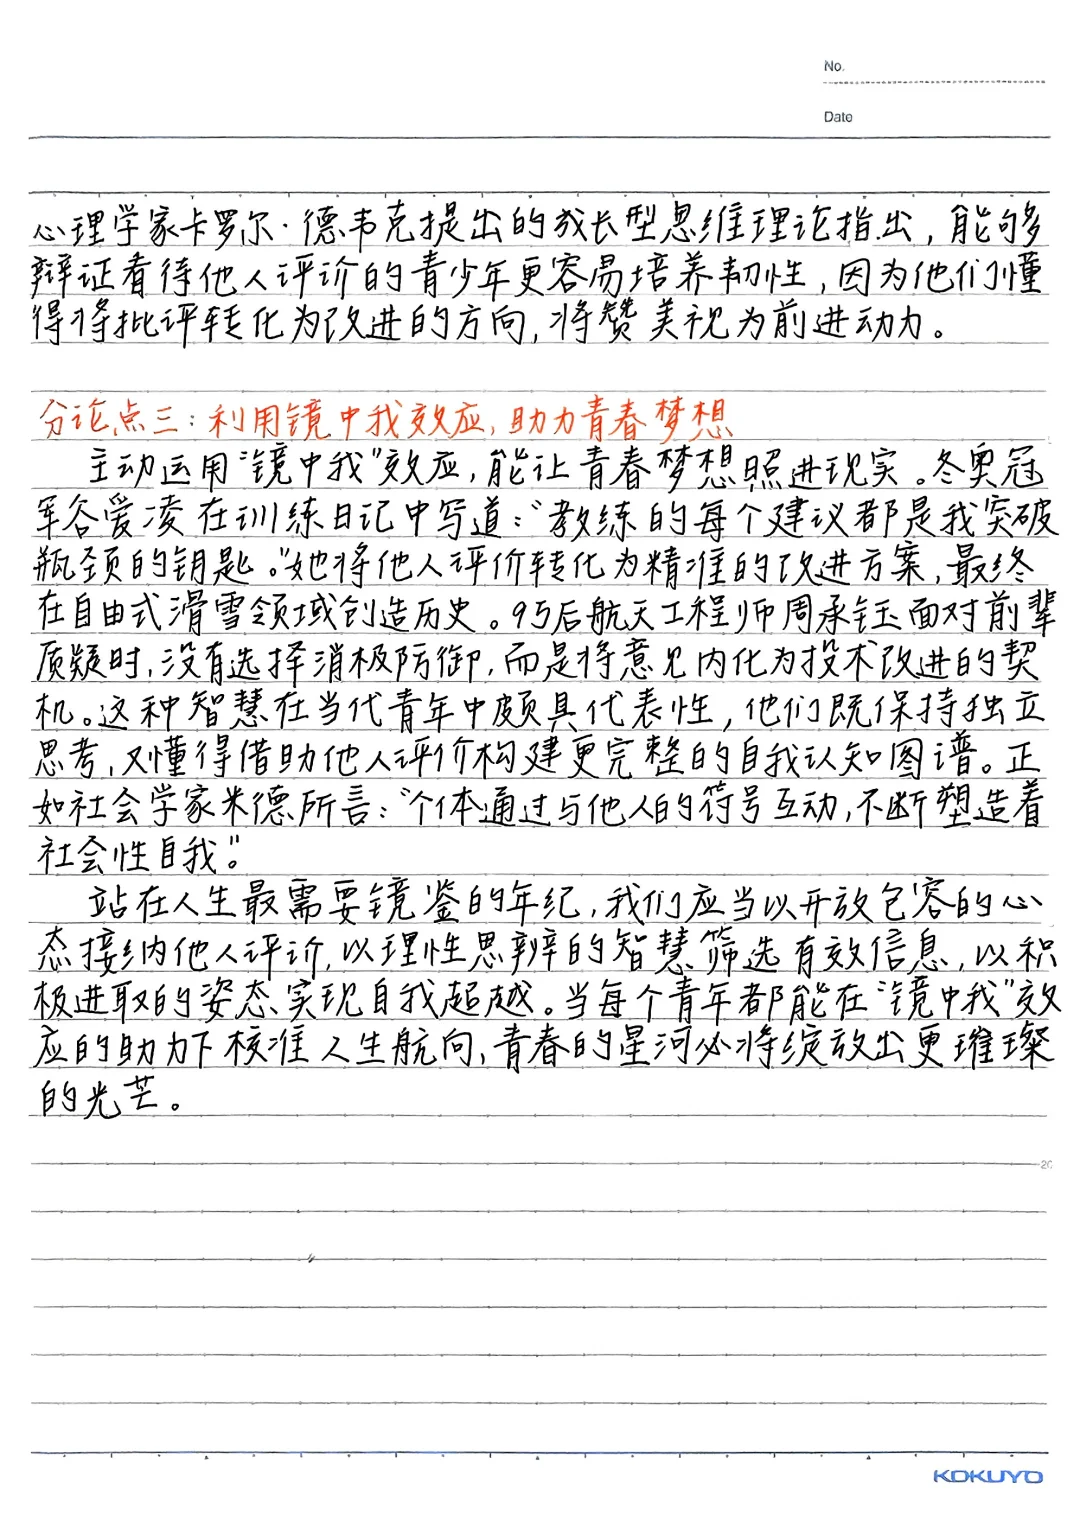 No.
Date
心理学家卡罗尔·德韦克提出的成长型思维理论指出，能够
辩证看待他人评价的青少年更容易培养韧性，因为他们懂
得将批评转化为改进的方向，将赞美视为前进动力。
分论点三：利用镜中我效应，助力青春梦想
主动运用“镜中我”效应，能让青春梦想照进现实。冬奥冠
军谷爱凌在训练日记中写道：“教练的每个建议都是我突破
瓶颈的钥匙。”她将他人评价转化为精准的改进方案，最终
在自由式滑雪领域创造历史。95后航天工程师周承钰面对前辈
质疑时，没有选择消极防御，而是将意见内化为技术改进的契
机。这种智慧在当代青年中颇具代表性，他们既保持独立
思考，又懂得借助他人评价构建更完整的自我认知图谱。正
如社会学家米德所言：“个体通过与他人的符号互动，不断塑造着
社会性自我”。
站在人生最需要镜鉴的年纪，我们应当以开放包容的心
态接纳他人评价，以理性思辨的智慧筛选有效信息，以积
极进取的姿态实现自我超越。当每个青年都能在“镜中我”效
应的助力下校准人生航向，青春的星河必将绽放出更璀璨
的光芒。
20
KOKUYO